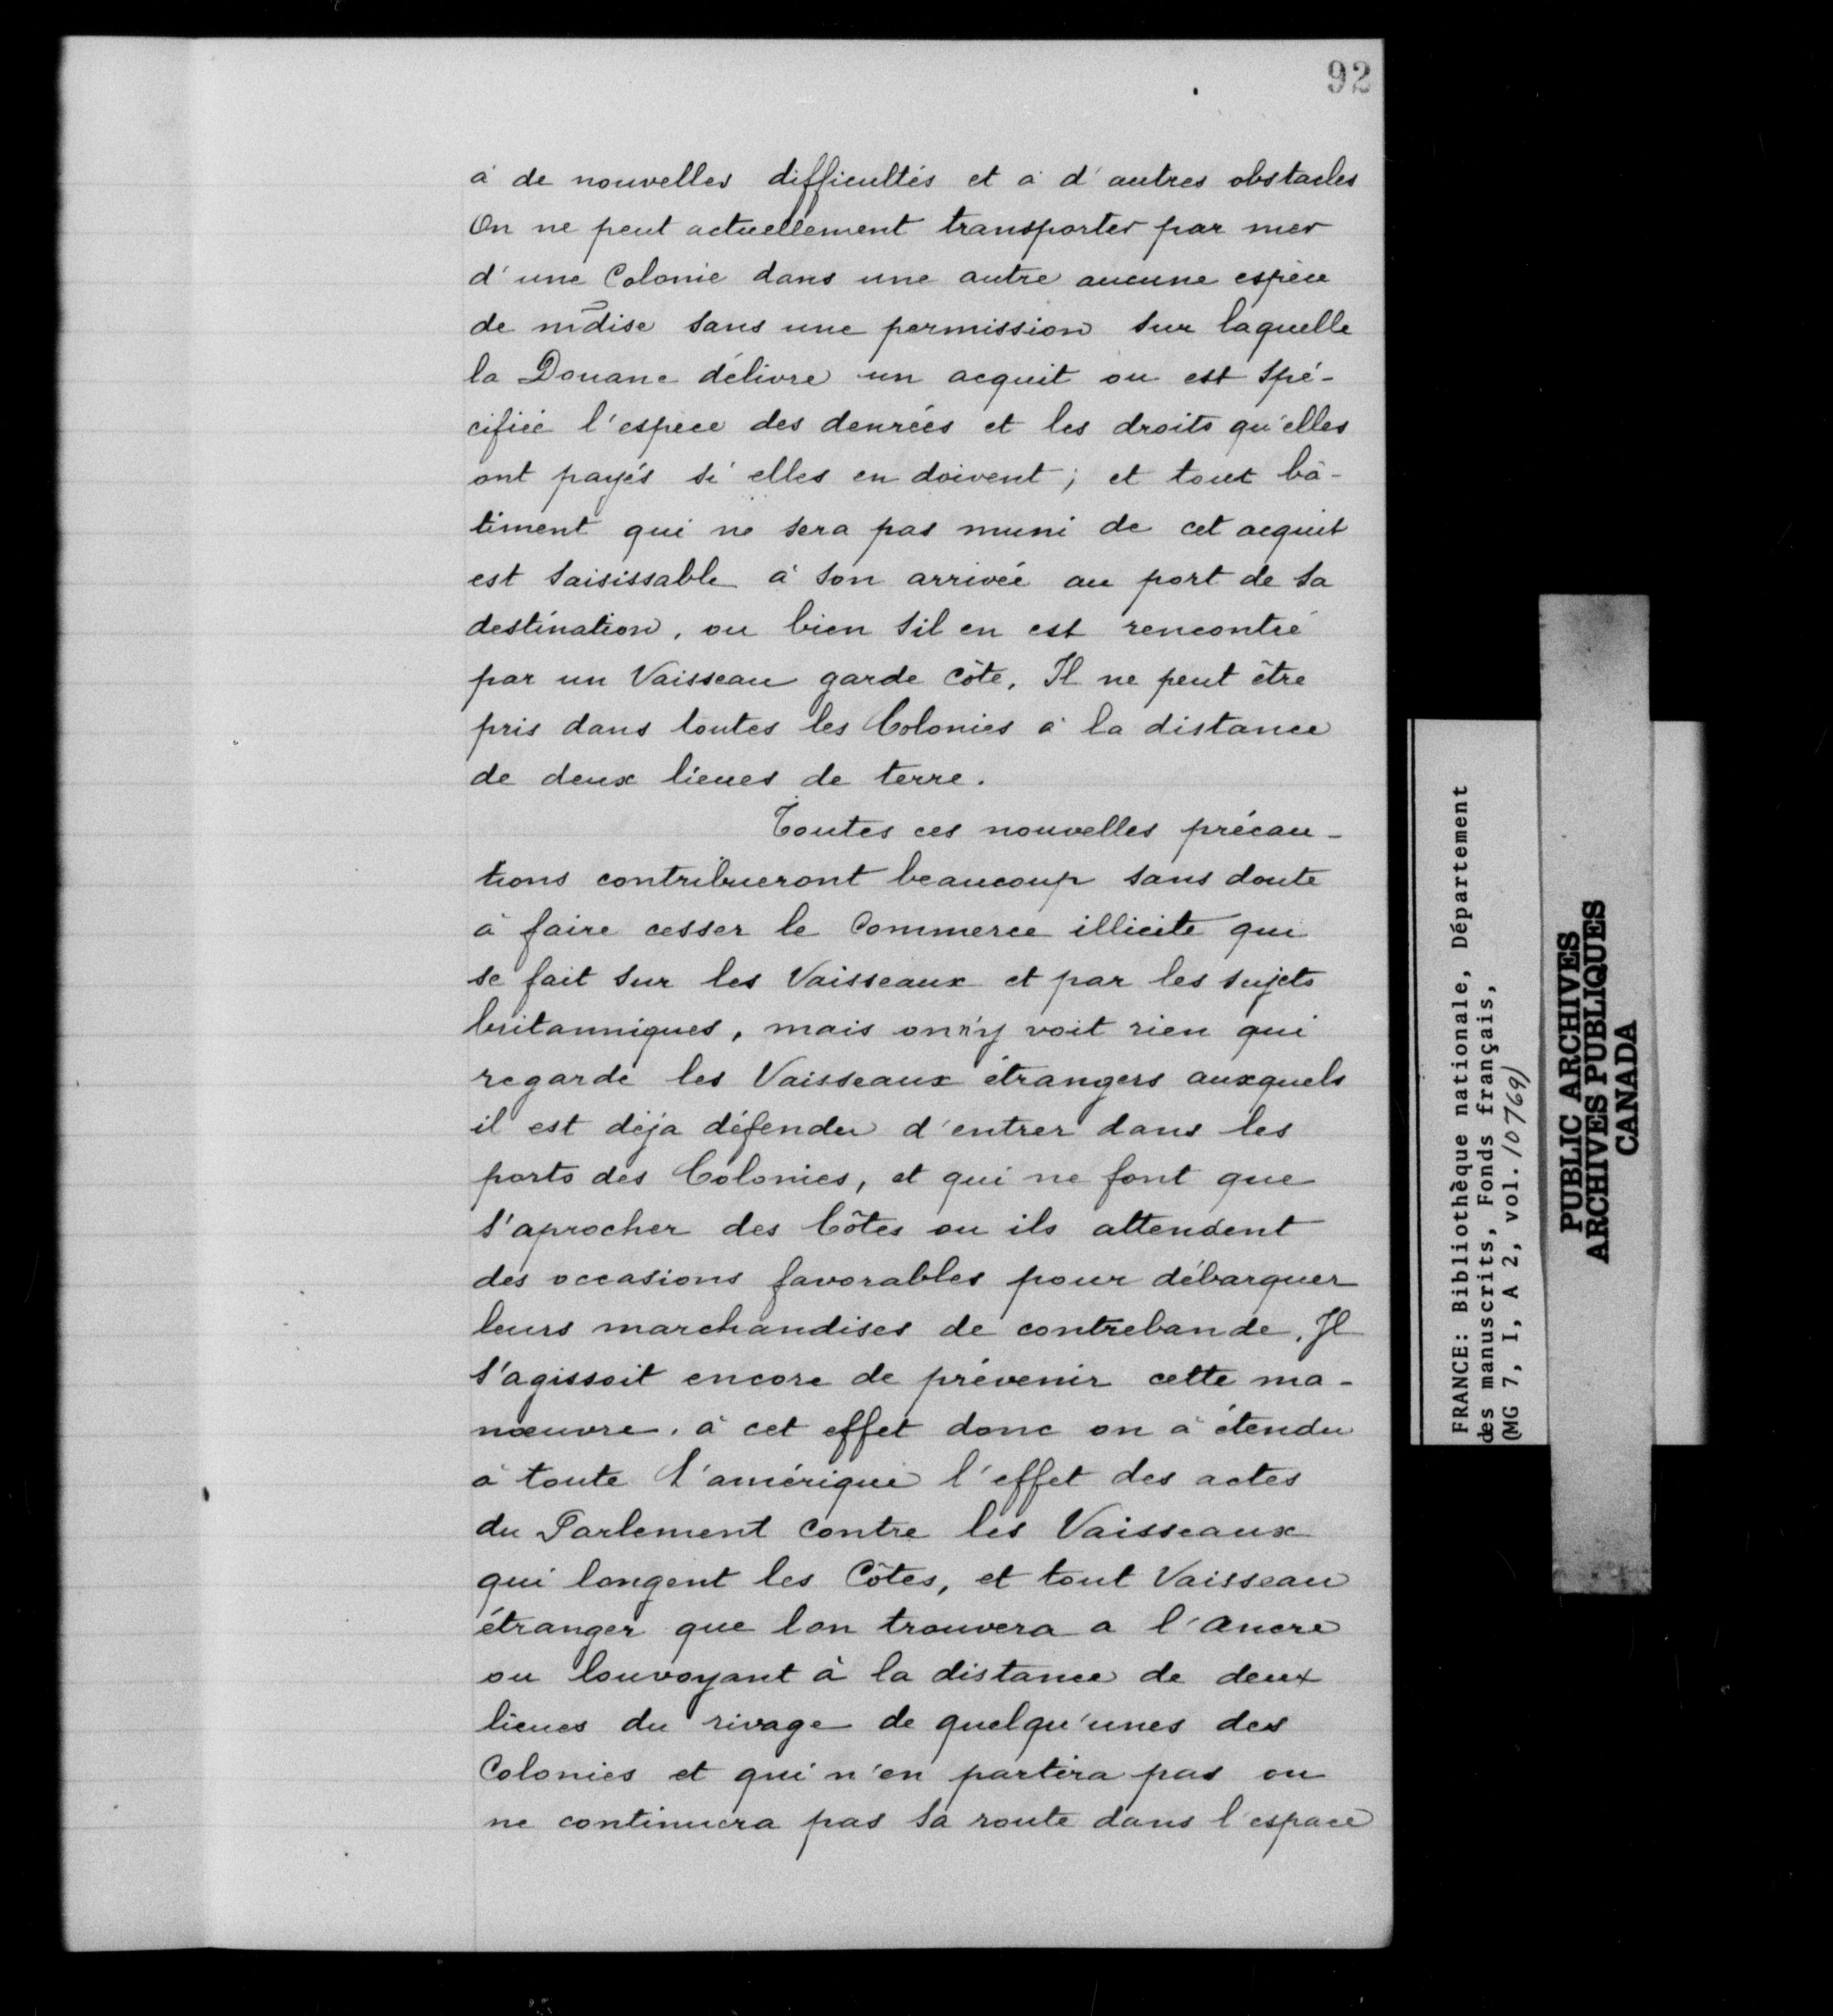 92
à de nouvelles difficultés et à d'autres obstacles
On ne peut actuellement transporter par mer
d'une Colonie dans une autre aucune espèce
de m̃dise sans une permission sur laquelle
la Douane délivre un acquit ou est spé-
cifiée l'espece des denrées et les droits qu'elles
ont payés si elles en doivent ; et tout bâ-
timent qui ne sera pas muni de cet acquit
est saisissable à son arrivée au port de sa
destination, ou bien s'il en est rencontré
par un Vaisseau garde côte. Il ne peut être
pris dans toutes les Colonies à la distance
de deux lieues de terre.
Toutes ces nouvelles précau-
tions contribueront beaucoup sans doute
à faire cesser le Commerce illicite qui
se fait sur les Vaisseaux et par les sujets
britanniques, mais on n'y voit rien qui
regarde les Vaisseaux étrangers auxquels
il est déja défendu d'entrer dans les
ports des Colonies, et qui ne font que
s'aprocher des Côtes ou ils attendent
des occasions favorables pour débarquer
leurs marchandises de contrebande. Il
s'agissoit encore de prévenir cette ma-
nœuvre. à cet effet donc on à étendu
à toute l'amérique l'effet des actes
du Parlement contre les Vaisseaux
qui longent les Côtes, et tout Vaisseau
étranger que lon trouvera a l'ancre
ou louvoyant à la distance de deux
lieues du rivage de quelqu'unes des
Colonies et qui n'en partira pas ou
ne continuera pas sa route dans l'espace
FRANCE: Bibliothèque nationale, Département
des manuscrits, Fonds français,
(MG 7, I, A 2, vol. 10769)
PUBLIC ARCHIVES
ARCHIVES PUBLIQUES
CANADA